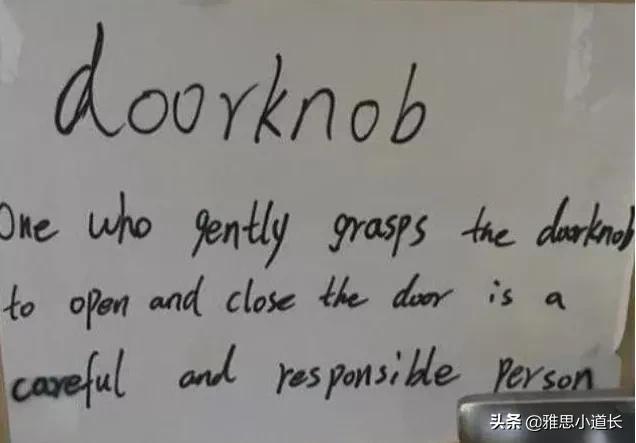 doorknob
One who gently grasps the doorknob
to open and close the door is a
careful and responsible person
头条 @雅思小道长